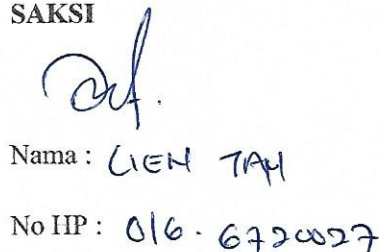 SAKSI
Nama : LIEN TAN
No HP : 016. 6720027